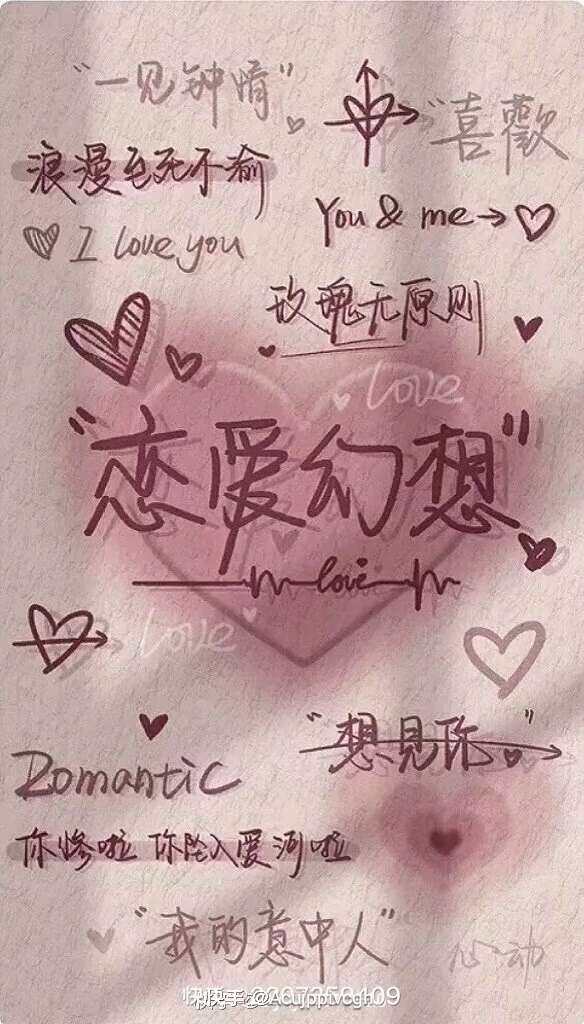 "一见钟情"
"喜歡
浪漫至死不渝
You & me→
I love you
玫瑰无原则
Love
"恋爱幻想"
love
Love
"想見你"
Romantic
你惨啦 你坠入爱河啦
"我的意中人"
心动